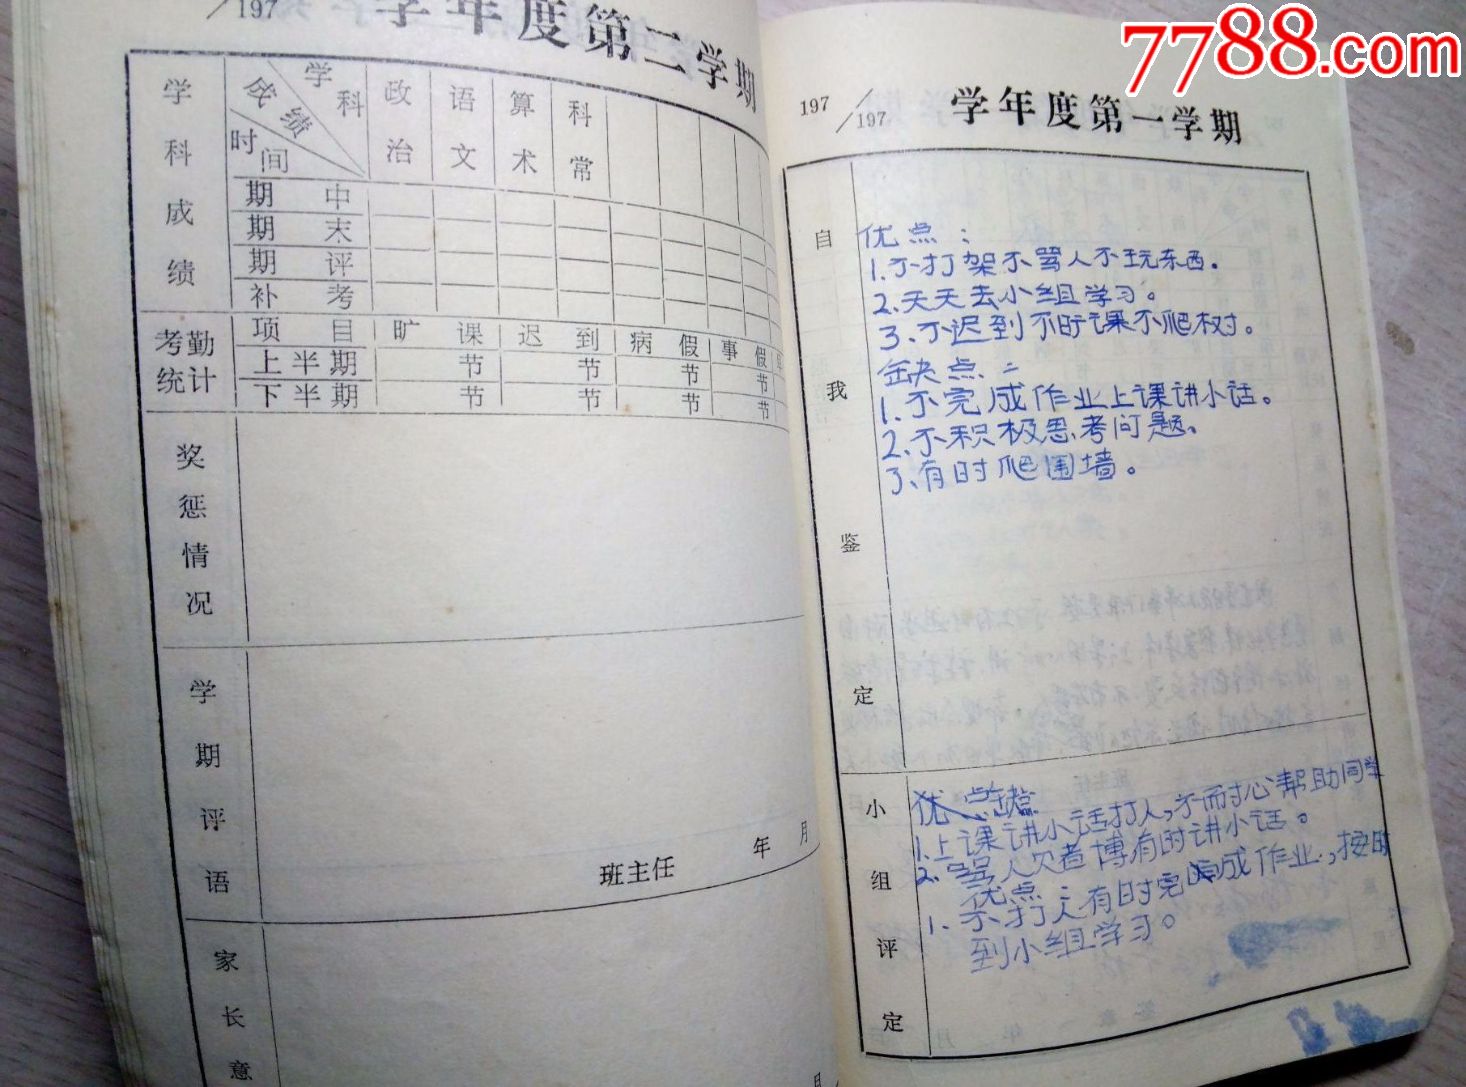 7788.com
/197
学年度第二学期
学科成绩
学科
成绩
时间
政治
语文
算术
科常
期中
期末
期评
补考
考勤统计
项目
旷课
迟到
病假
事假
上半期 节 节 节 节
下半期 节 节 节 节
奖惩情况
学期评语
班主任 年 月
家长意
月
197/197 学年度第一学期
自我鉴定
优点：
1.不打架不骂人不玩东西。
2.天天去小组学习。
3.不迟到不旷课不爬树。
缺点：
1.不完成作业上课讲小话。
2.不积极思考问题。
3.有时爬围墙。
小组评定
1.上课讲小话打人,不耐心帮助同学
2.骂人 有时讲小话。
优点：
1.不打人有时完成作业,按时
到小组学习。